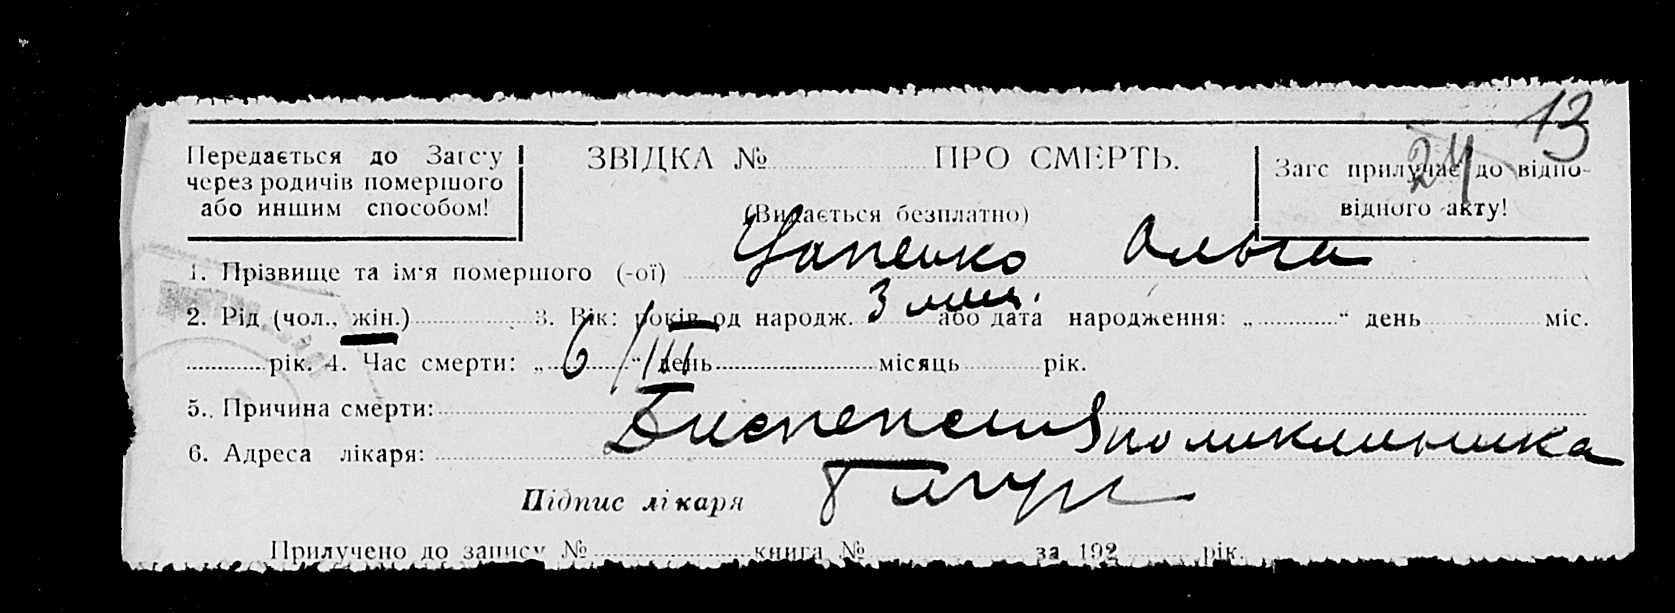 13
24
Передається до Загс'у
через родичів помершого
або иншим способом!
ЗВІДКА № ПРО СМЕРТЬ.
(Видається безплатно)
Загс прилучає до відпо-
відного акту!
1. Прізвище та ім'я помершого (-ої) Цапенко Ольга
2. Рід (чол., жін.) 3. Вік: років од народж. 3 міс. або дата народження: „ “ день міс.
рік. 4. Час смерти: „ 6/III “ день місяць рік.
5. Причина смерти: Диспепсия
6. Адреса лікаря: поликлиника
Підпис лікаря
Прилучено до запису № книга № за 192 рік.